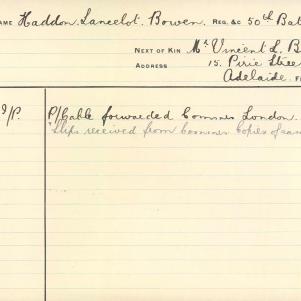 NAME Haddon, Lancelot. Bowen. REG. &C 50th Bat
NEXT OF KIN Mr Vincent L. B
ADDRESS 15. Pirie Stree
Adelaide
/P. P/Cable forwarded Commns London.
Slips received from Commns Copies of